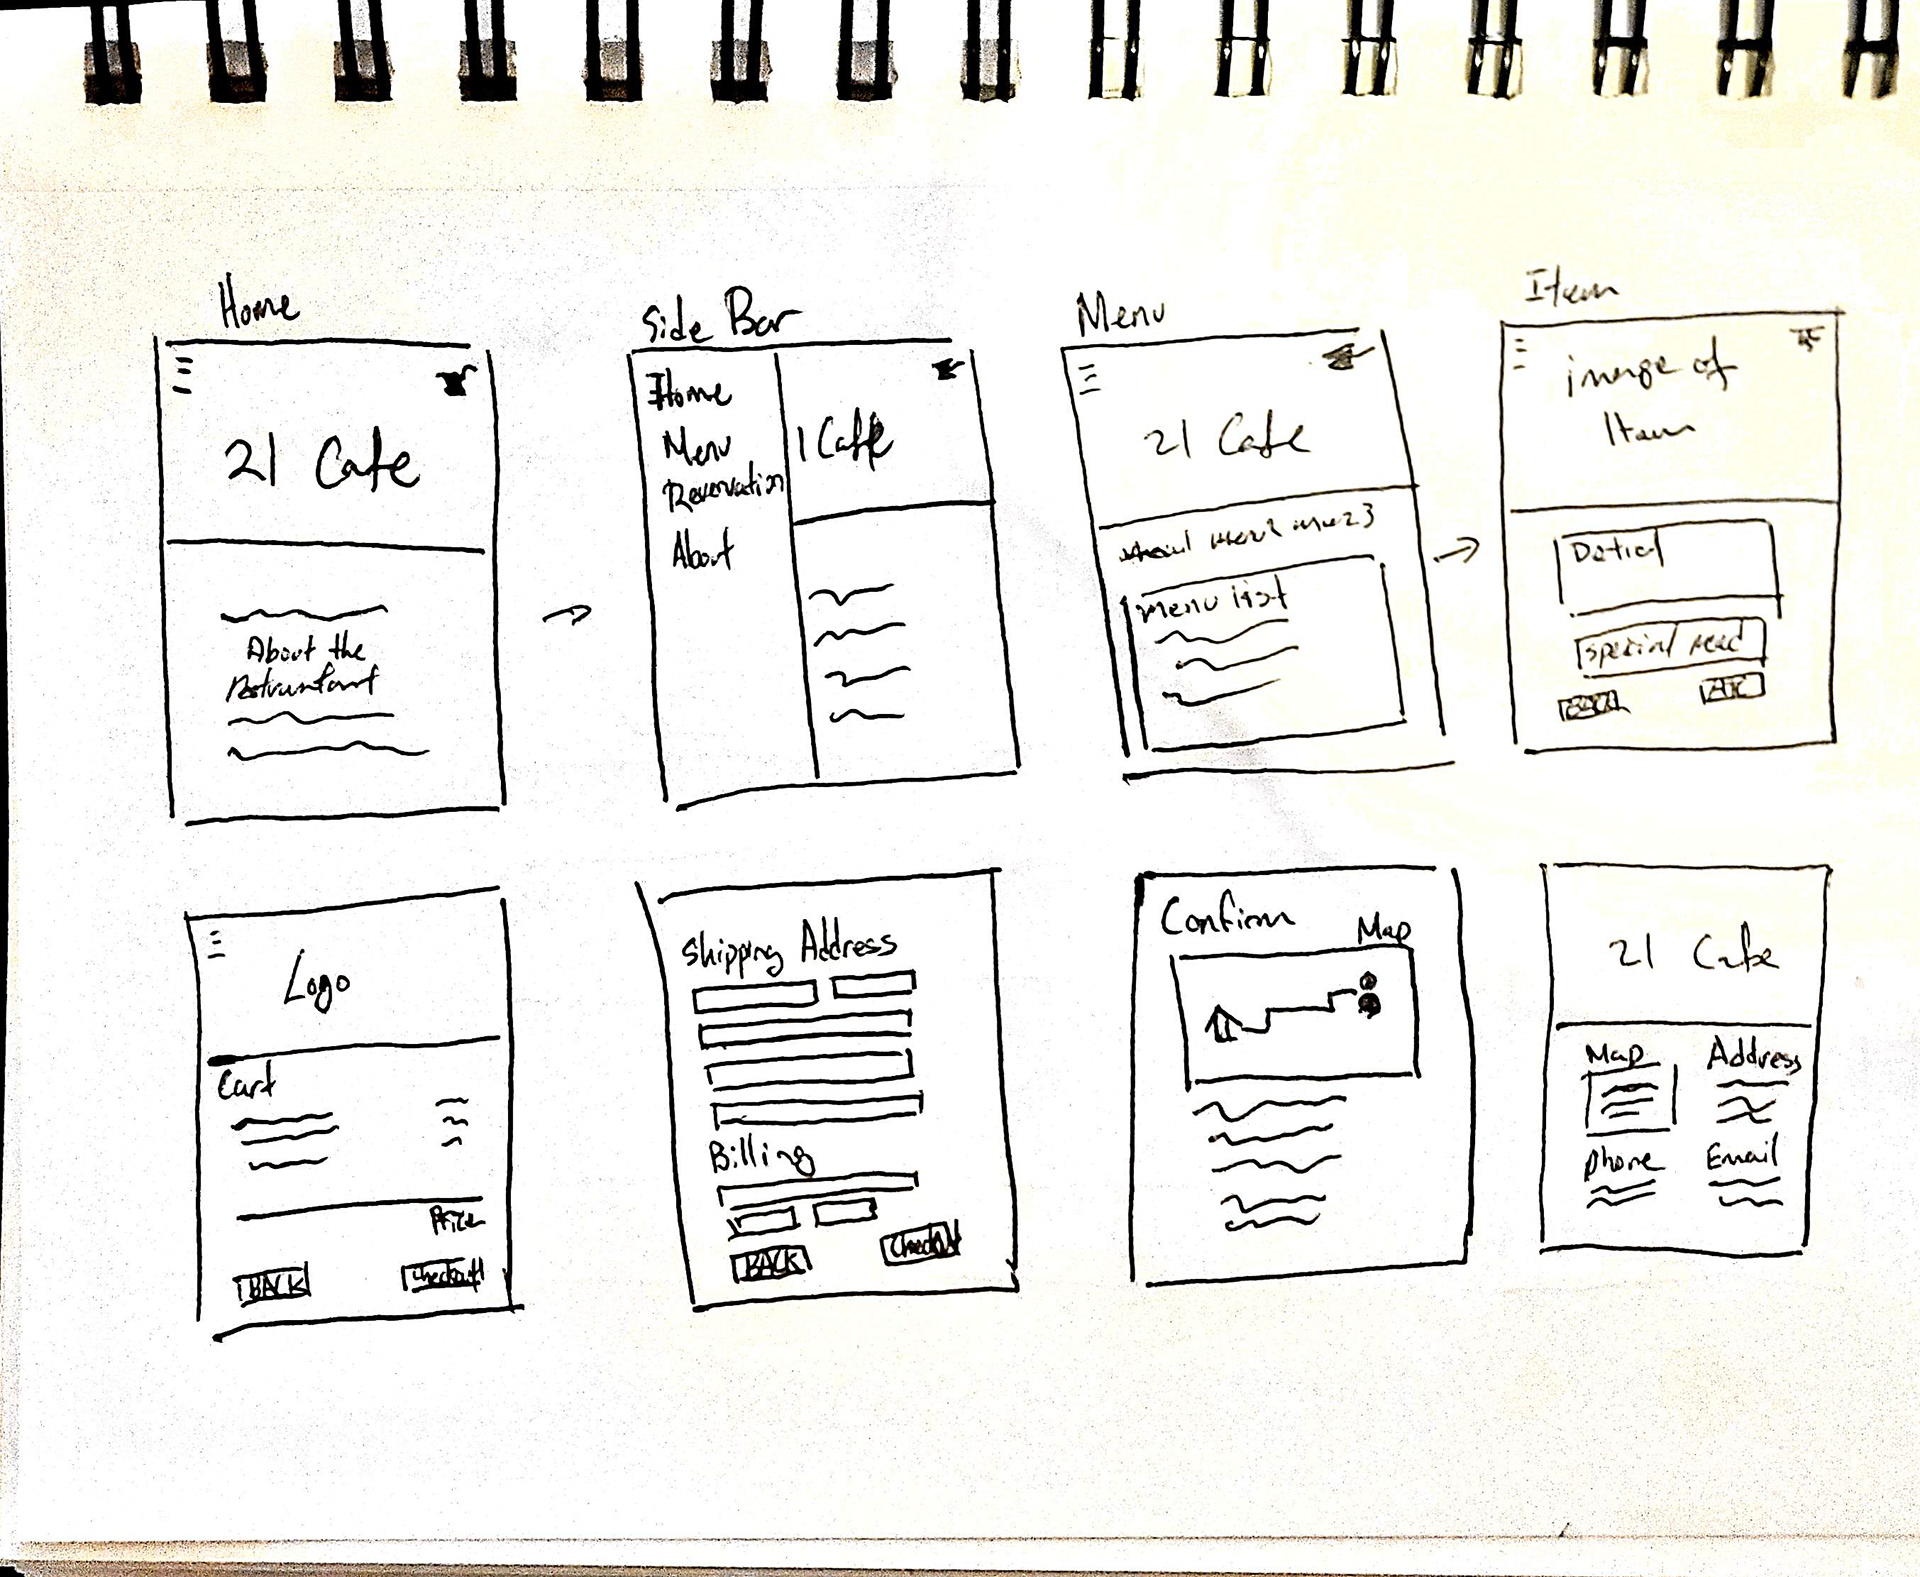 Home
21 Cafe
About the
Side Bar
Home
Menu
Reservation
About
1 Cafe
Menu
21 Cafe
menu2 menu3
menu list
Item
image of
Item
Detial
special need
BACK
ATC
Logo
Cart
Price
BACK
checkout
Shipping Address
Billing
BACK
Checkout
Confirm
Map
21 Cafe
Map
Address
phone
Email